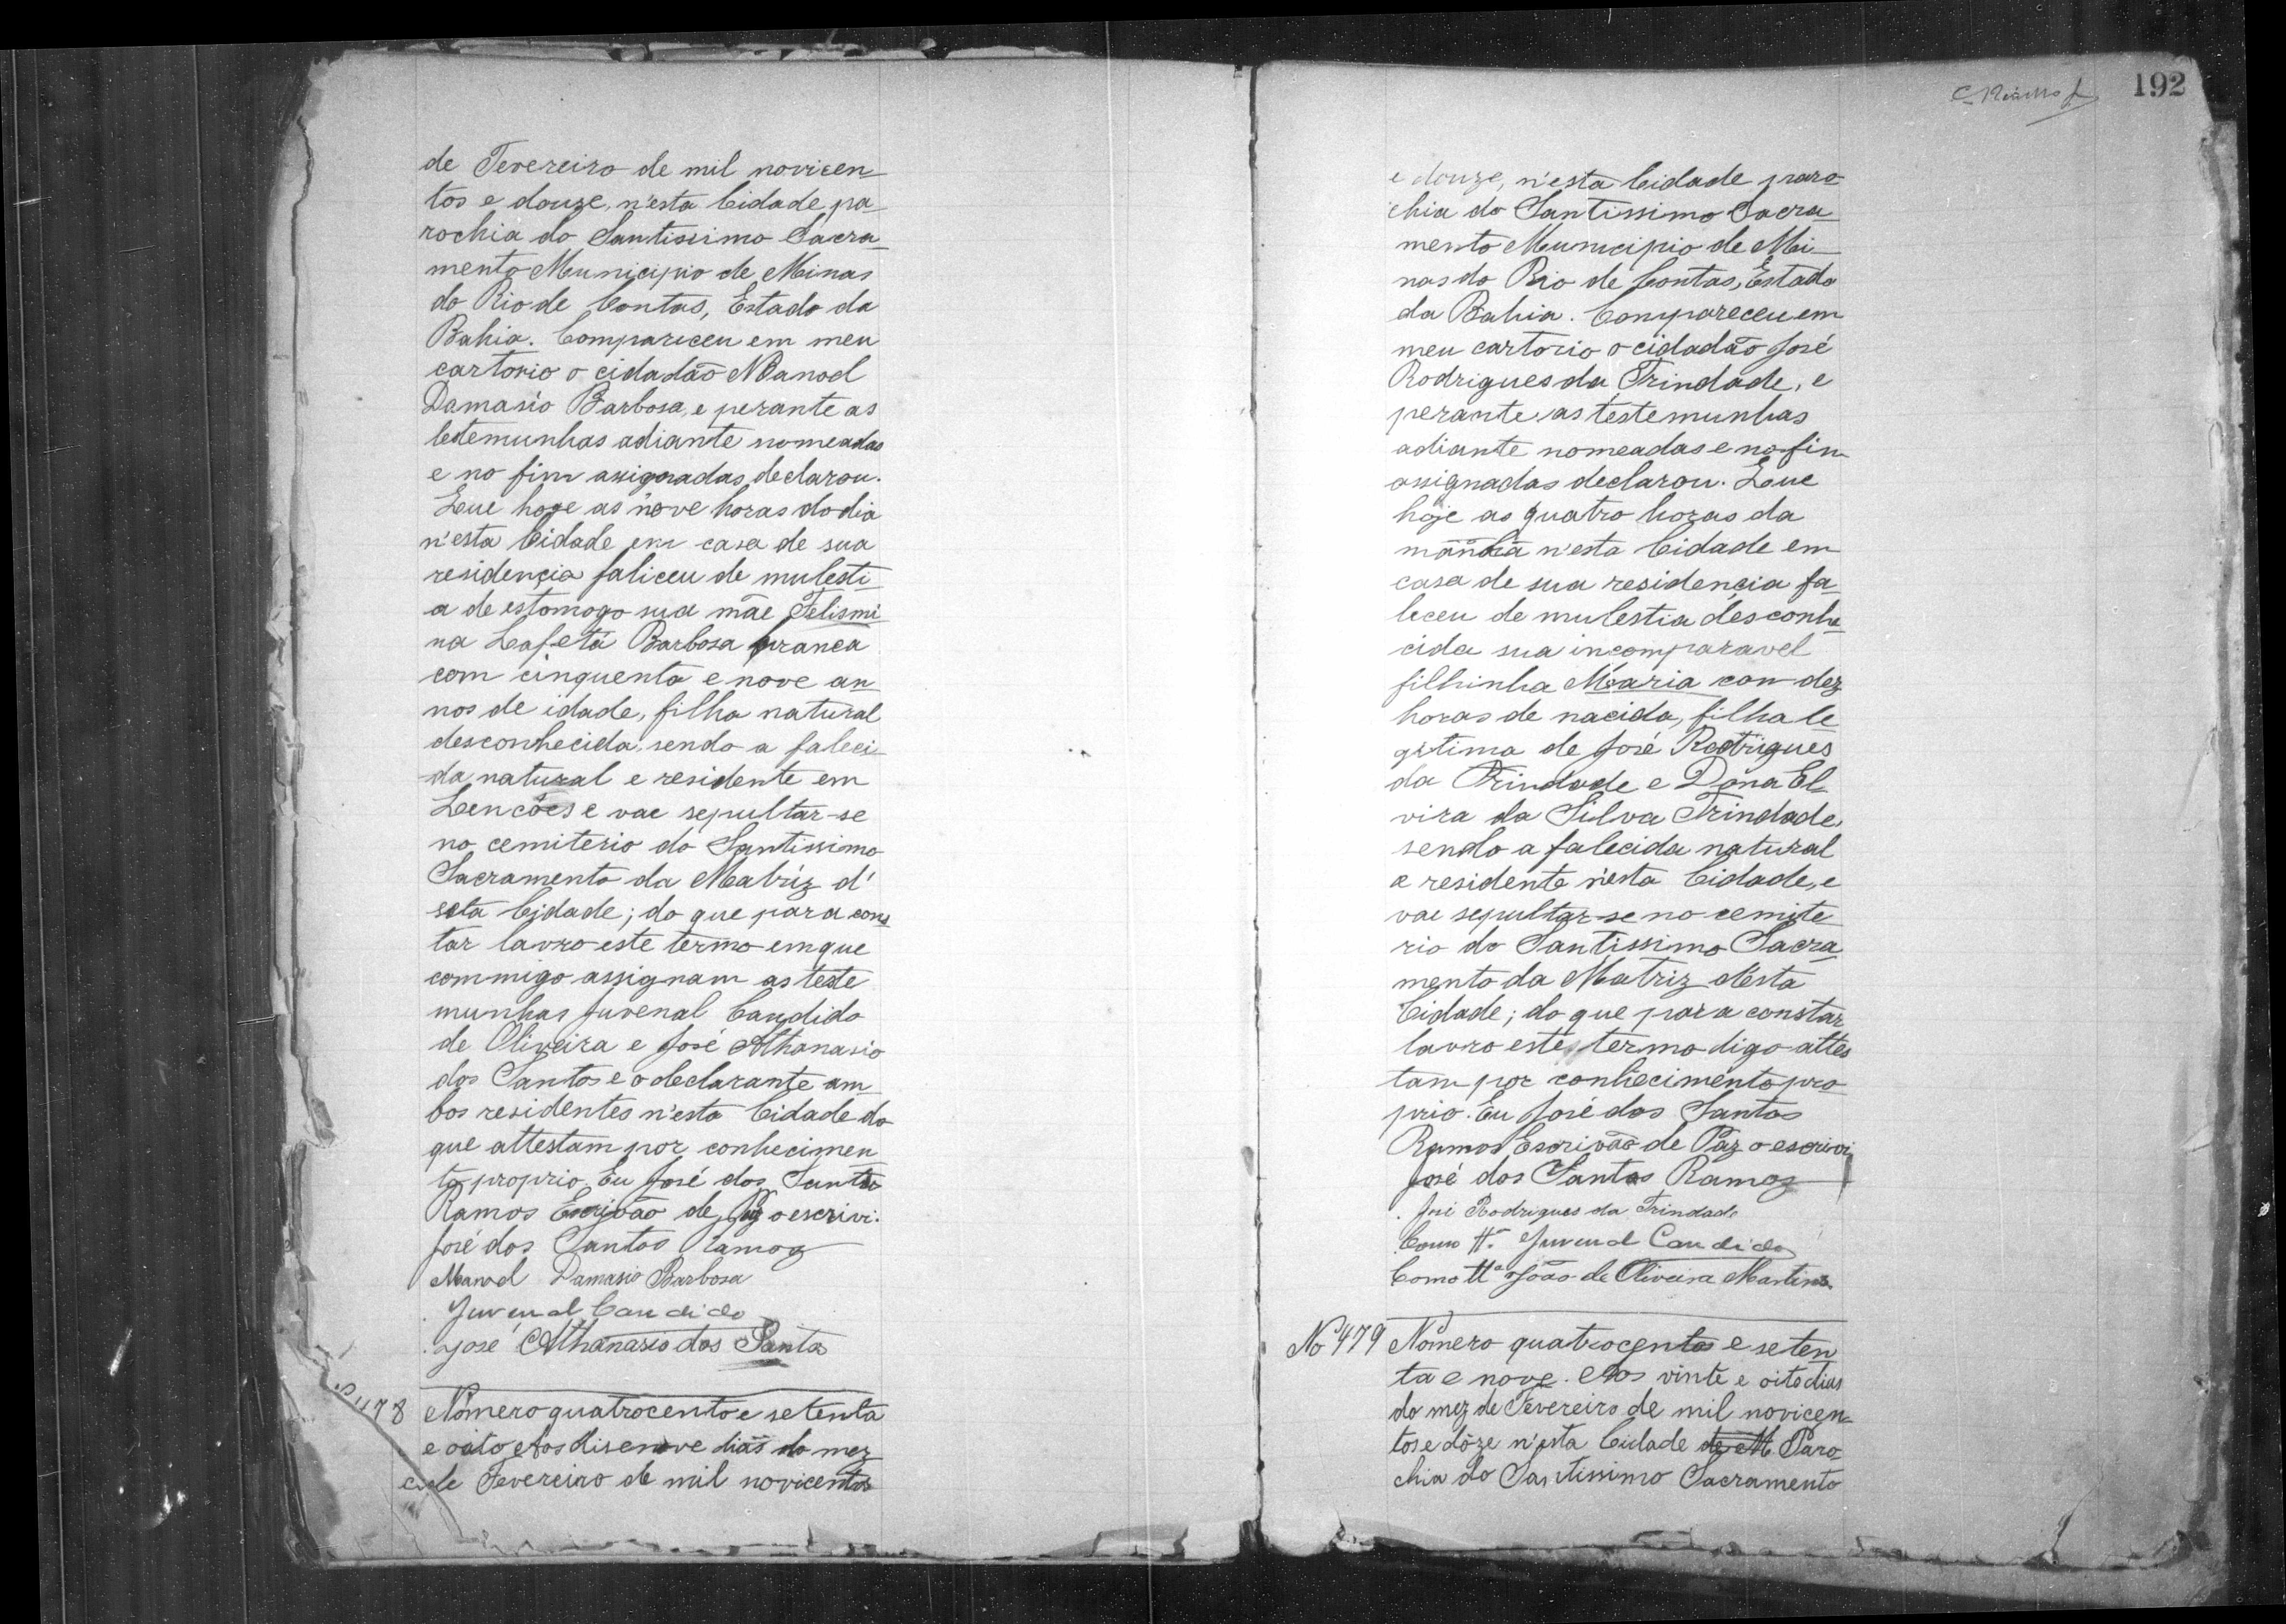 de Fevereiro de mil novicen
tos e douze, n'esta Cidade pa
rochia do Santissimo Sacra
mento Municipio de Minas
do Rio de Contas, Estado da
Bahia. Compariceu em meu
cartorio o cidadão Manoel
Damasio Barbosa, e perante as
testemunhas adiante nomeadas
e no fim assignadas declarou.
Que hoje as nove horas do dia
n'esta Cidade em casa de sua
residencia faliceu de mulesti
a de estomogo sua mãe Felismi
na Lafetá Barbosa branca
com cinquenta e nove an
nos de idade, filha natural
desconhecida, sendo a faleci
da natural e residente em
Lencóes e vae sepultar-se
no cemiterio do Santissimo
Sacramento da Matriz d'
esta Cidade; do que para cons
tar lavro este termo em que
commigo assignam as teste
munhas Juvenal Candido
de Oliveira e José Athanasio
dos Santos e o declarante am
bos residentes n'esta Cidade do
que attestam por conhecimen
to proprio. Eu José dos Santos
Ramos Escrivão de Paz o escrivi.
José dos Santos Ramos
Manoel Damasio Barbosa
Juvenal Candido
José Athanasio dos Santos
No 478 Nomero quatrocento e setenta
e oito Aos disenove dias do mez
de Fevereiro de mil novicentos
192
e douze, n'esta Cidade paro
chia do Santissimo Sacra
mento Municipio de Mi
nas do Rio de Contas, Estado
da Bahia. Compareceu em
meu cartorio o cidadão José
Rodrigues da Trindade, e
perante as testemunhas
adiante nomeadas e no fim
assignadas declarou. Que
hoje as quatro horas da
manhã n'esta Cidade em
casa de sua residencia fa
leceu de mulestia desconhe
cida sua incomparavel
filhinha Maria com dez
horas de nacida, filha le
gitima de José Rodrigues
da Trindade e Dona El
vira da Silva Trindade,
sendo a falecida natural
e residente n'esta Cidade, e
vae sepultar-se no cemite
rio do Santissimo Sacra
mento da Matriz d'esta
Cidade; do que para constar
lavro este termo digo attes
tam por conhecimento pro
prio. Eu José dos Santos
Ramos Escrivão de Paz o escrivi
José dos Santos Ramos
José Rodrigues da Trindade
Como tta Juvenal Candido
Como tta João de Oliveira Martins
No 479 Nomero quatrocentos e seten
ta e nove. Aos vinte e oito dias
do mez de Fevereiro de mil novicen
tos e dôze n'esta Cidade de M Paro
chia do Santissimo Sacramento